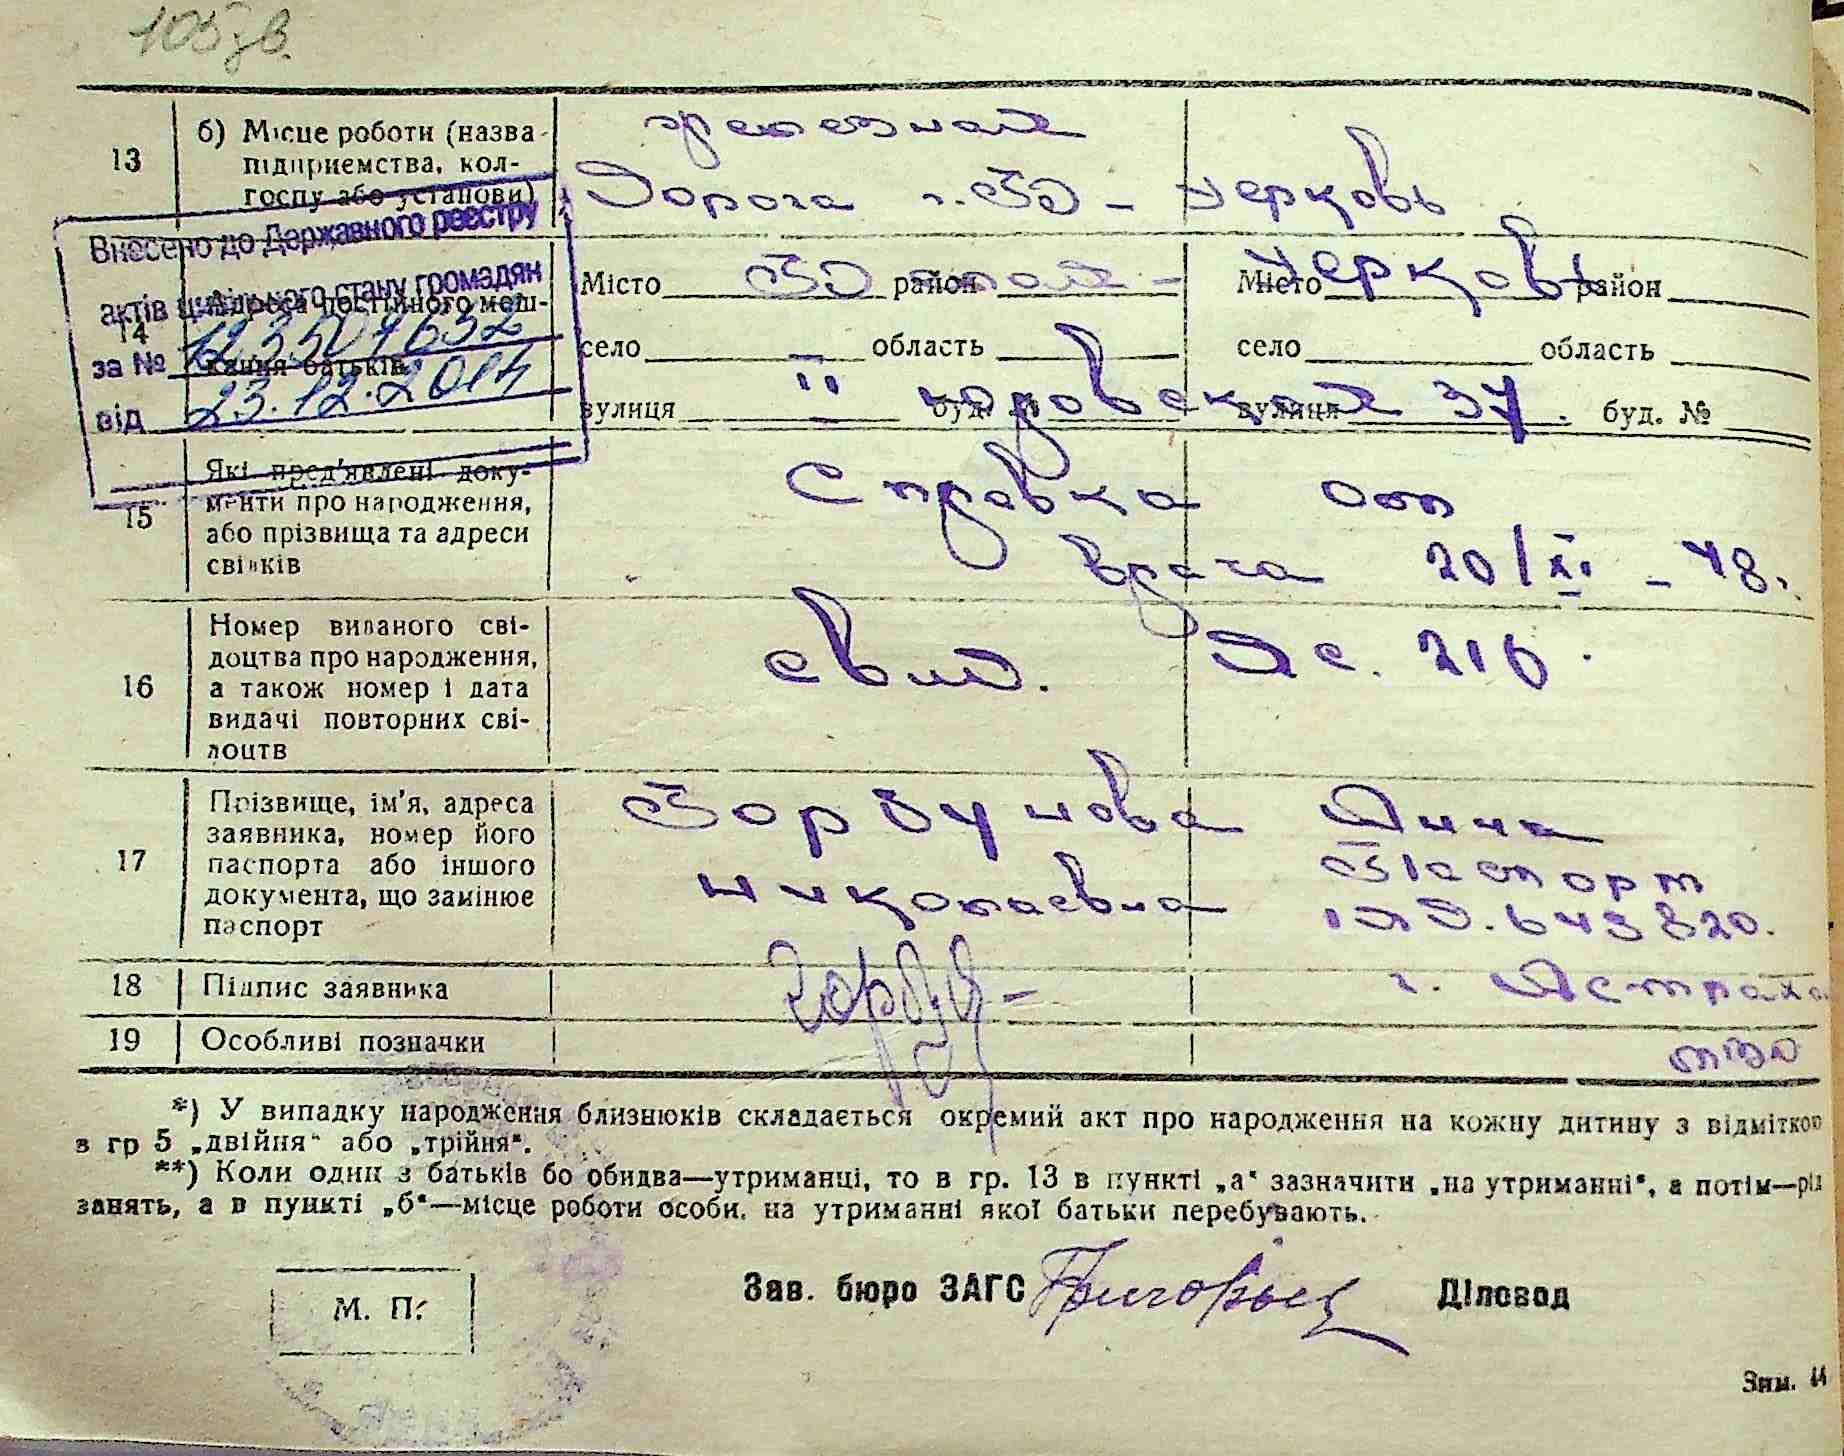 105зв.
13
б) Місце роботи (назва підприємства, колгоспу або установи)
железная
Дорога г. Б – Церковь
Внесено до Державного реєстру
актів цивільного стану громадян
за №
від 23.12.2014
14
Адреса постійного меш-
кання батьків
Місто район
Місто Церковь район
село область
село область
вулиця буд. № вулиця 37. буд. №
15
Які пред'явлені доку-
менти про народження,
або прізвища та адреси
свідків
Справка от
врача 20/XI – 48.
16
Номер виданого сві-
доцтва про народження,
а також номер і дата
видачі повторних сві-
доцтв
свид. Яс. 216.
17
Прізвище, ім'я, адреса
заявника, номер його
паспорта або іншого
документа, що замінює
паспорт
Горбунова Анна
Николаевна
Паспорт
643820.
18
Підпис заявника
г. Астраха
19
Особливі позначки
*) У випадку народження близнюків складається окремий акт про народження на кожну дитину з відміткою
в гр 5 „двійня" або „трійня".
**) Коли один з батьків бо обидва—утриманці, то в гр. 13 в пункті „а" зазначити „на утриманні", а потім—рід
занять, а в пункті „б"—місце роботи особи, на утриманні якої батьки перебувають.
М. П.
Зав. бюро ЗАГС
Діловод
Зим. 44